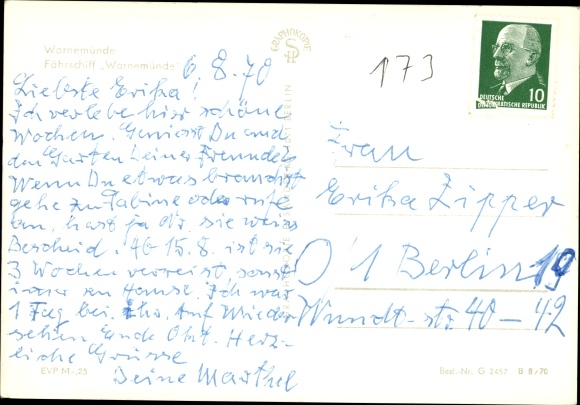 Warnemünde
Fährschiff „Warnemünde"
6.8.70
Liebste Erika!
Ich verlebe hier schöne
Wochen. Geniesst Du auch
den Garten Deiner Freunde?
Wenn Du etwas brauchst
gehe zu Sabine oder rufe
an, hast ja Nr. sie weiss
Bescheid. Ab 15.8. ist sie
3 Wochen verreist, sonst
immer zu Hause. Ich war
1 Tag bei Ihr. Auf Wieder
sehen Ende Okt. Herz-
liche Grüsse
Deine Marthel
EVP M -,25
GRAPHOKOPIE
173
10
DEUTSCHE
DEMOKRATISCHE REPUBLIK
Frau
Erika Zipper
O 1 Berlin 19
Wundt-str 40-42
Best.-Nr. G 2457 B 8/70